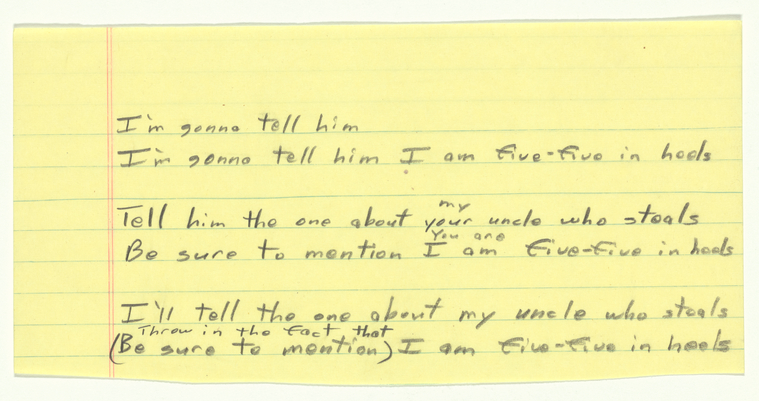 I'm gonna tell him
I'm gonna tell him I am five-five in heels
my
Tell him the one about your uncle who steals
You are
Be sure to mention I am five-five in heels
I'll tell the one about my uncle who steals
Throw in the fact that
(Be sure to mention) I am five-five in heels